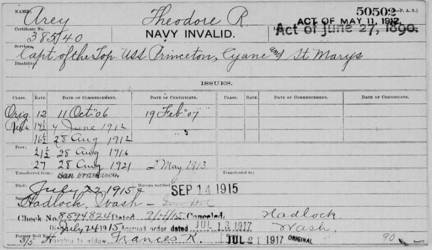 Arey Theodore R. 50502
Certificate No. NAVY INVALID. ACT OF MAY 11, 1912
38540 Act of June 27, 1890.
Capt of the Top USS Princeton, Cyane and St Marys
ISSUES.
CLASS DATE OF COMMENCEMENT. DATE OF CERTIFICATE. CLASS DATE OF COMMENCEMENT. DATE OF CERTIFICATE.
Orig 12 11 Oct '06 19 Feb '07
June 1912
28 Aug 1912
21½ 28 Aug 1916
27 28 Aug 1921 2 May 1913
July 22 1915 SEP 14 1915
Hadlock, Wash
Check No. 8594824 Dated 9/4/15 Canceled. Hadlock
July 24 1915 Dated JUL 13 1917 Wash.
Frances R. JUL 21 1917 ORIGINAL